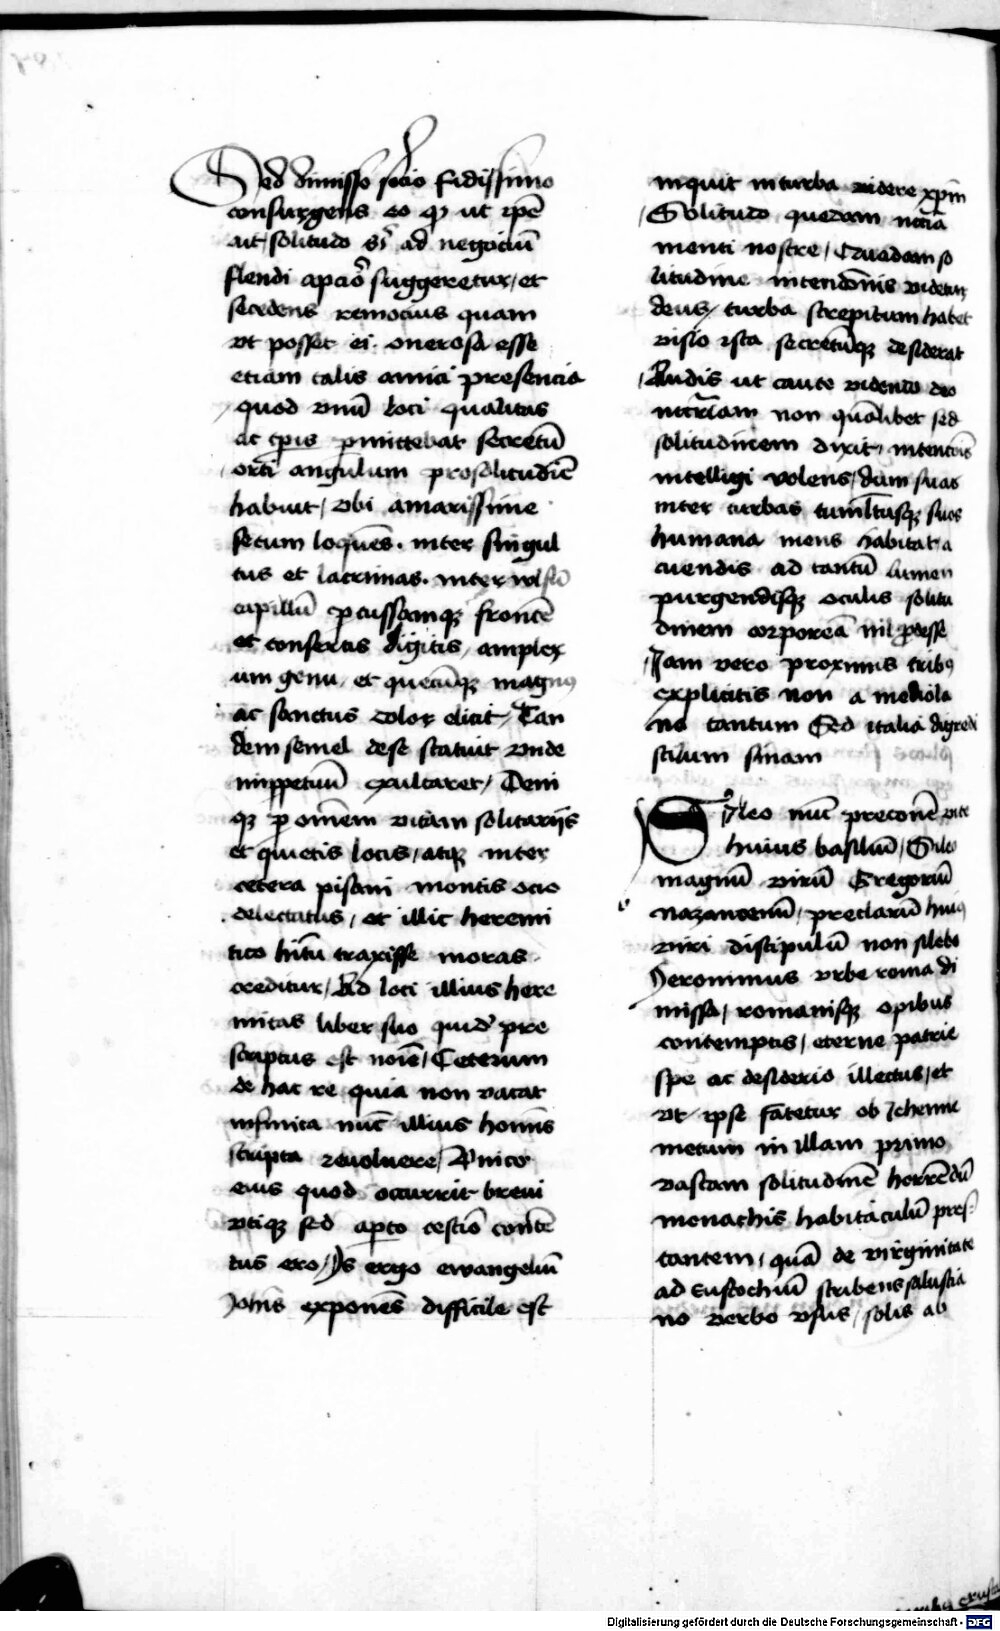 Sed dimisso socio fidissimo
consurgens eo qꝫ ut ip̄e
ait solitudo si͛ ad negociū
flendi apcio͛ suggeretur, et
secedens remocius quam
vt posset ei onerosa esse
etiam talis amici presencia
quod vnū loci qualitas
ac tꝑis ꝑmittebat secretū
orti angulum pro solitudīe
habuit, vbi amarissime
secum loquēs. inter singul
tus et lacrimas. inter vulsū
capillū ꝑcussamqꝫ frontē
et consertis digitis, amplex
um genu, et quecūqꝫ magnꝰ
ac sanctus dolor elicit, Tan
dem semel dese statuit vnde
inippetuū exultaret, Deni
qꝫ ꝑ omēm vitam solitarijs
et quietis locis, atqꝫ inter
cetera pisani montis ocio
delectatus, et illic heremi
tico hītu traxisse moras
creditur, Ad loci illius here
mitas liber suo quidē pre
scriptus est noīe, Ceterum
de hac re quia non vacat
infinita nūc illius homīs
scripta reuoluere, Vnico
eius quod occurrit breui
vtiqꝫ sed apto testīo conten
tus ero, Is ergo ewangeliū
Johīs exponēs difficile est
inquit in turba videre xp̄m
Solitudo quedam nccīa
menti nostre, Quadam so
litudine intencōnis videtur
deus, turba strepitum habet
visio ista secretūqꝫ desiderat
Audis ut caute vidento deo
nccīam non quālibet sed
solitudinem dixit, intencōis
intelligi volens, dum suas
inter turbas tumltusqꝫ suos
humana mens habitat a
cuendis ad tantū lumen
purgendisqꝫ oculis solitu
dinem corpoream nil prodesse
Jam vero proximis tribꝰ
explicitis non a mediola
no tantum Sed italia digredi
stilum sinam
Sileo nūc preconē vite
huius basiliū, Sileo
magnū virū Gregoriū
nazanzenū, preclarū huiꝰ
viri discipulū non silebo
Jeronimus vrbe roma di
missa, romanisqꝫ opibus
contemptis, eterne patrie
spe ac desiderio illectus, et
vt ipse fatetur ob Jehenne
metum in illam primo
vastam solitudinē horrēdū
monachis habitaculū pres
tantem, quā de virginitate
ad Eustochiū scribens salustia
no verbo vsus, solis ab